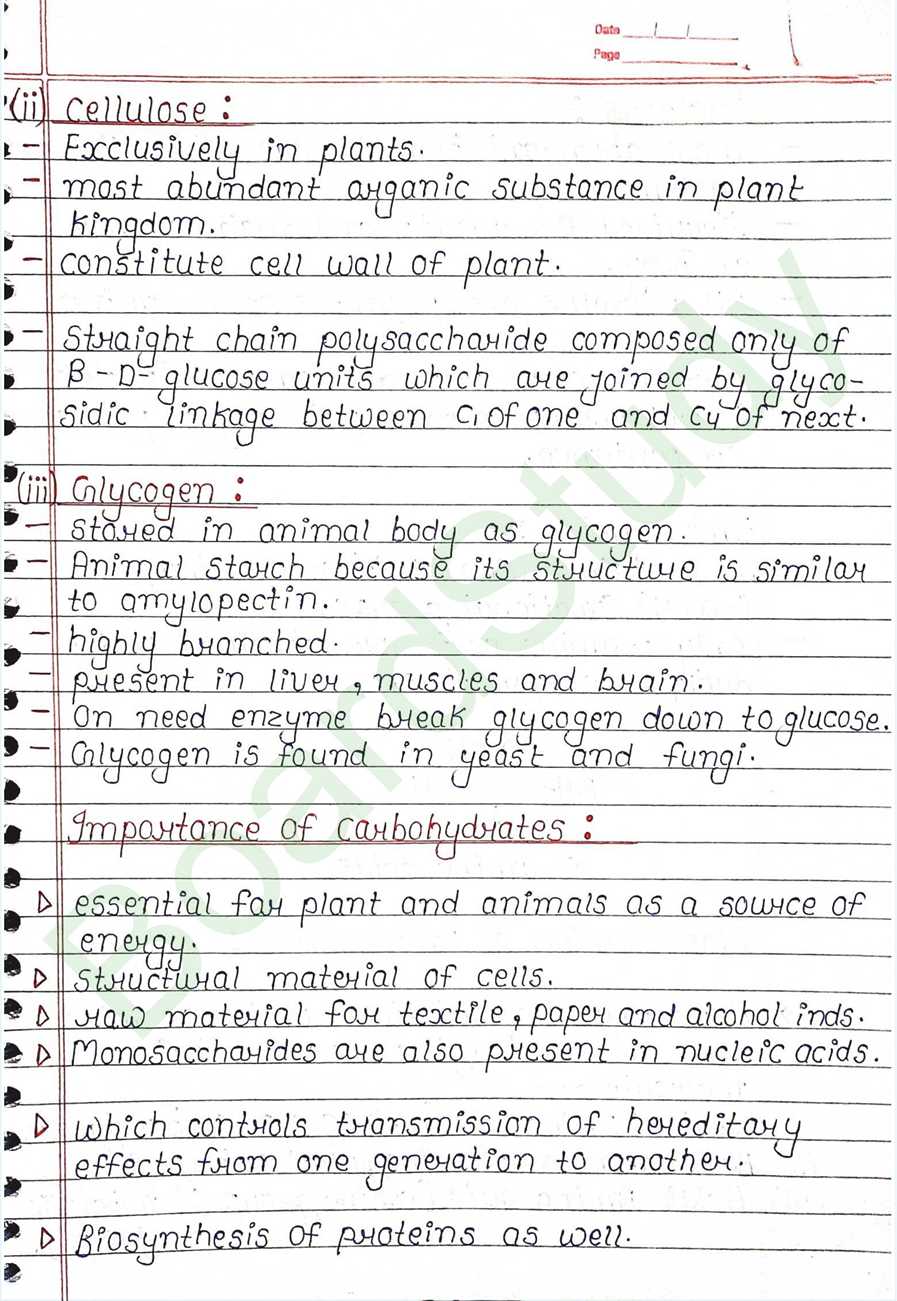 Date __/__/__
Page ______
(ii) Cellulose :
- Exclusively in plants.
- most abundant organic substance in plant
kingdom.
- constitute cell wall of plant.
- Straight chain polysaccharide composed only of
β-D-glucose units which are joined by glyco-
sidic linkage between C1 of one and C4 of next.
(iii) Glycogen :
- stored in animal body as glycogen.
- Animal starch because its structure is similar
to amylopectin.
- highly branched.
- present in liver, muscles and brain.
- On need enzyme break glycogen down to glucose.
- Glycogen is found in yeast and fungi.
Importance of Carbohydrates :
▷ essential for plant and animals as a source of
energy.
▷ Structural material of cells.
▷ raw material for textile, paper and alcohol inds.
▷ Monosaccharides are also present in nucleic acids.
▷ which controls transmission of hereditary
effects from one generation to another.
▷ Biosynthesis of proteins as well.
BoardStudy